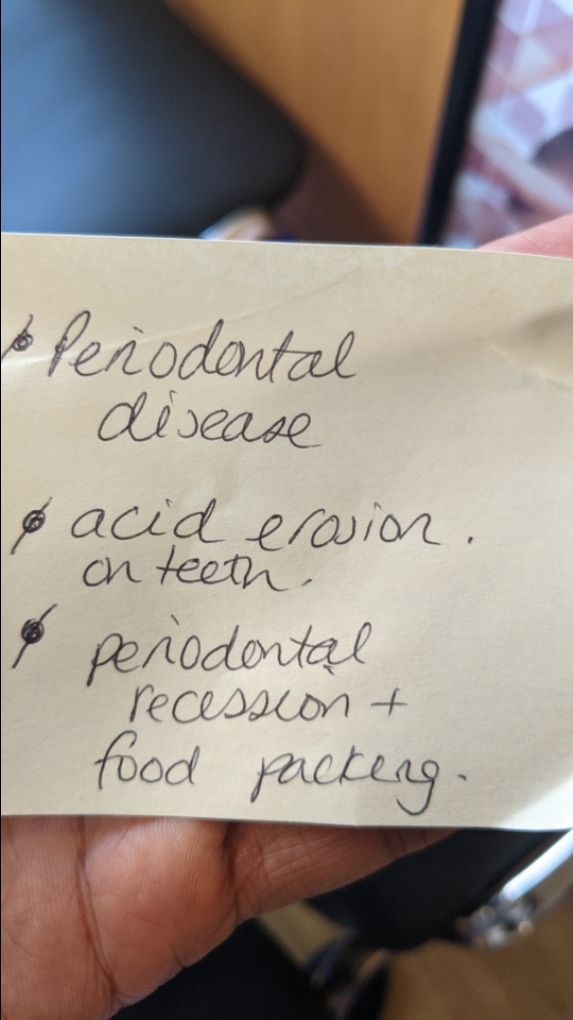 • Periodontal
disease
• acid erosion.
on teeth.
• periodontal
recession +
food packing.